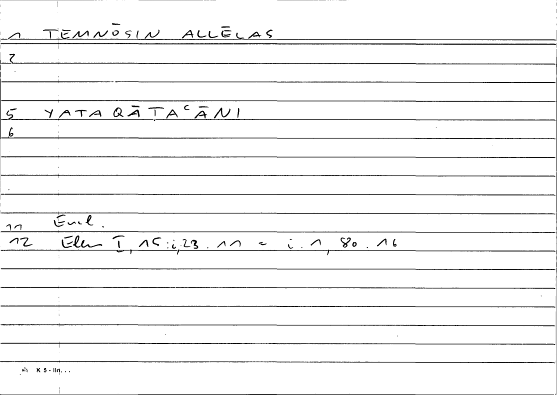 1 TEMNŌSIN ALLĒLAS
2
5 YATAQĀṬAʿĀNI
6
11 Eucl.
12 Elem I, 15 : i, 23 . 11 = i . 1, 80 . 16